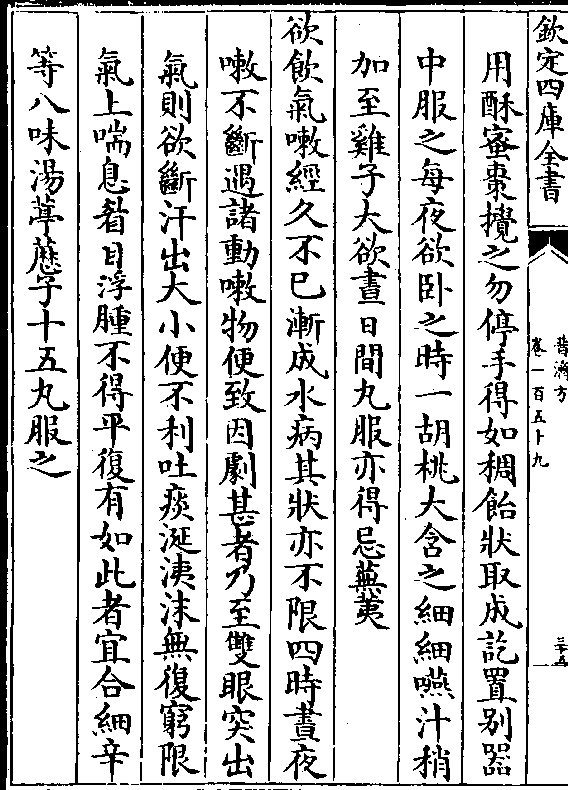 欽定四庫全書
普濟方
卷一百五十九
三十五
用酥蜜棗攪之勿停手得如稠飴狀取成訖置别器
中服之每夜欲卧之時一胡桃大含之細細嚥汁稍
加至雞子大欲晝日間丸服亦得忌蕪荑
欲飲氣嗽經久不已漸成水病其狀亦不限四時晝夜
嗽不斷遇諸動嗽物便致困劇甚者乃至雙眼突出
氣則欲斷汗出大小便不利吐痰涎洟沫無復窮限
氣上喘息㫺目浮腫不得平復有如此者宜合細辛
等八味湯葶藶子十五丸服之